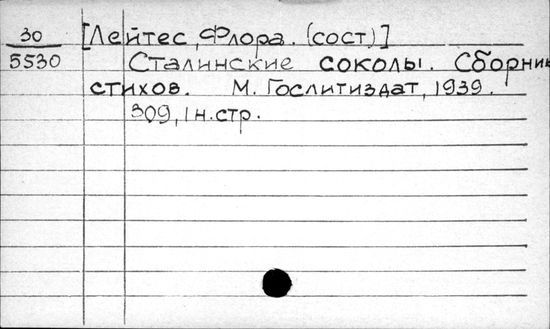 30 [Лейтес, Флора. (сост)]
5530 Сталинские соколы. Сборник
стихов. М. Гослитиздат, 1939.
309, 1 н. стр.